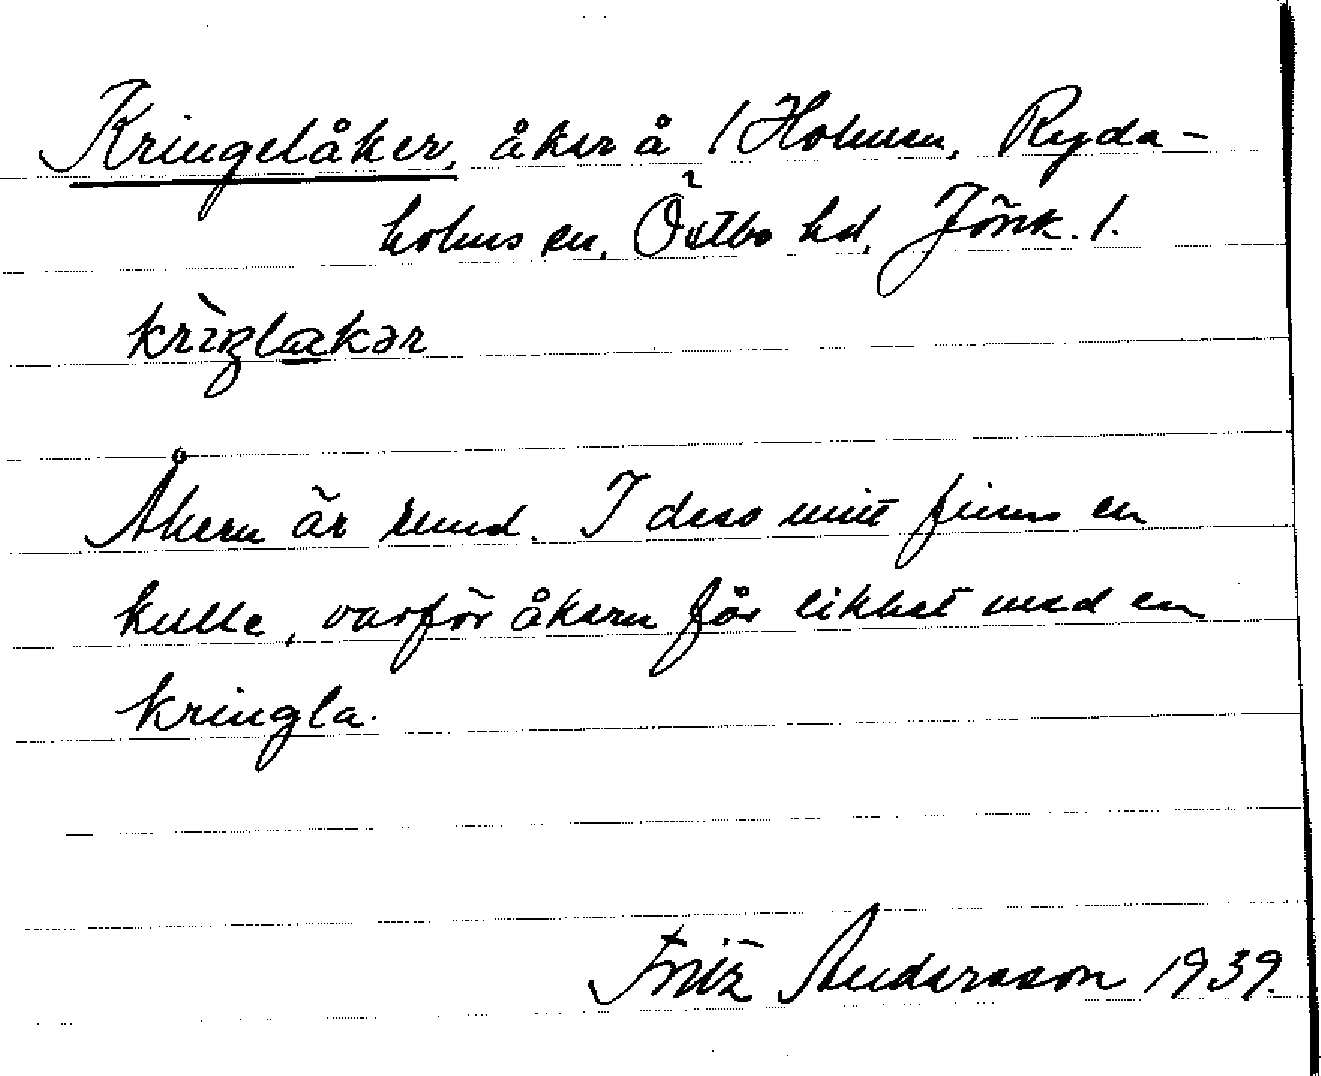 Kringelåker, åker å 1 Holmen, Ryda-
holms sn, Östbo hd, Jönk. l.
krìŋlakər
Åkern är rund. I dess mitt finns en
kulle, varför åkern får likhet med en
kringla.
Fritz Andersson 1939.